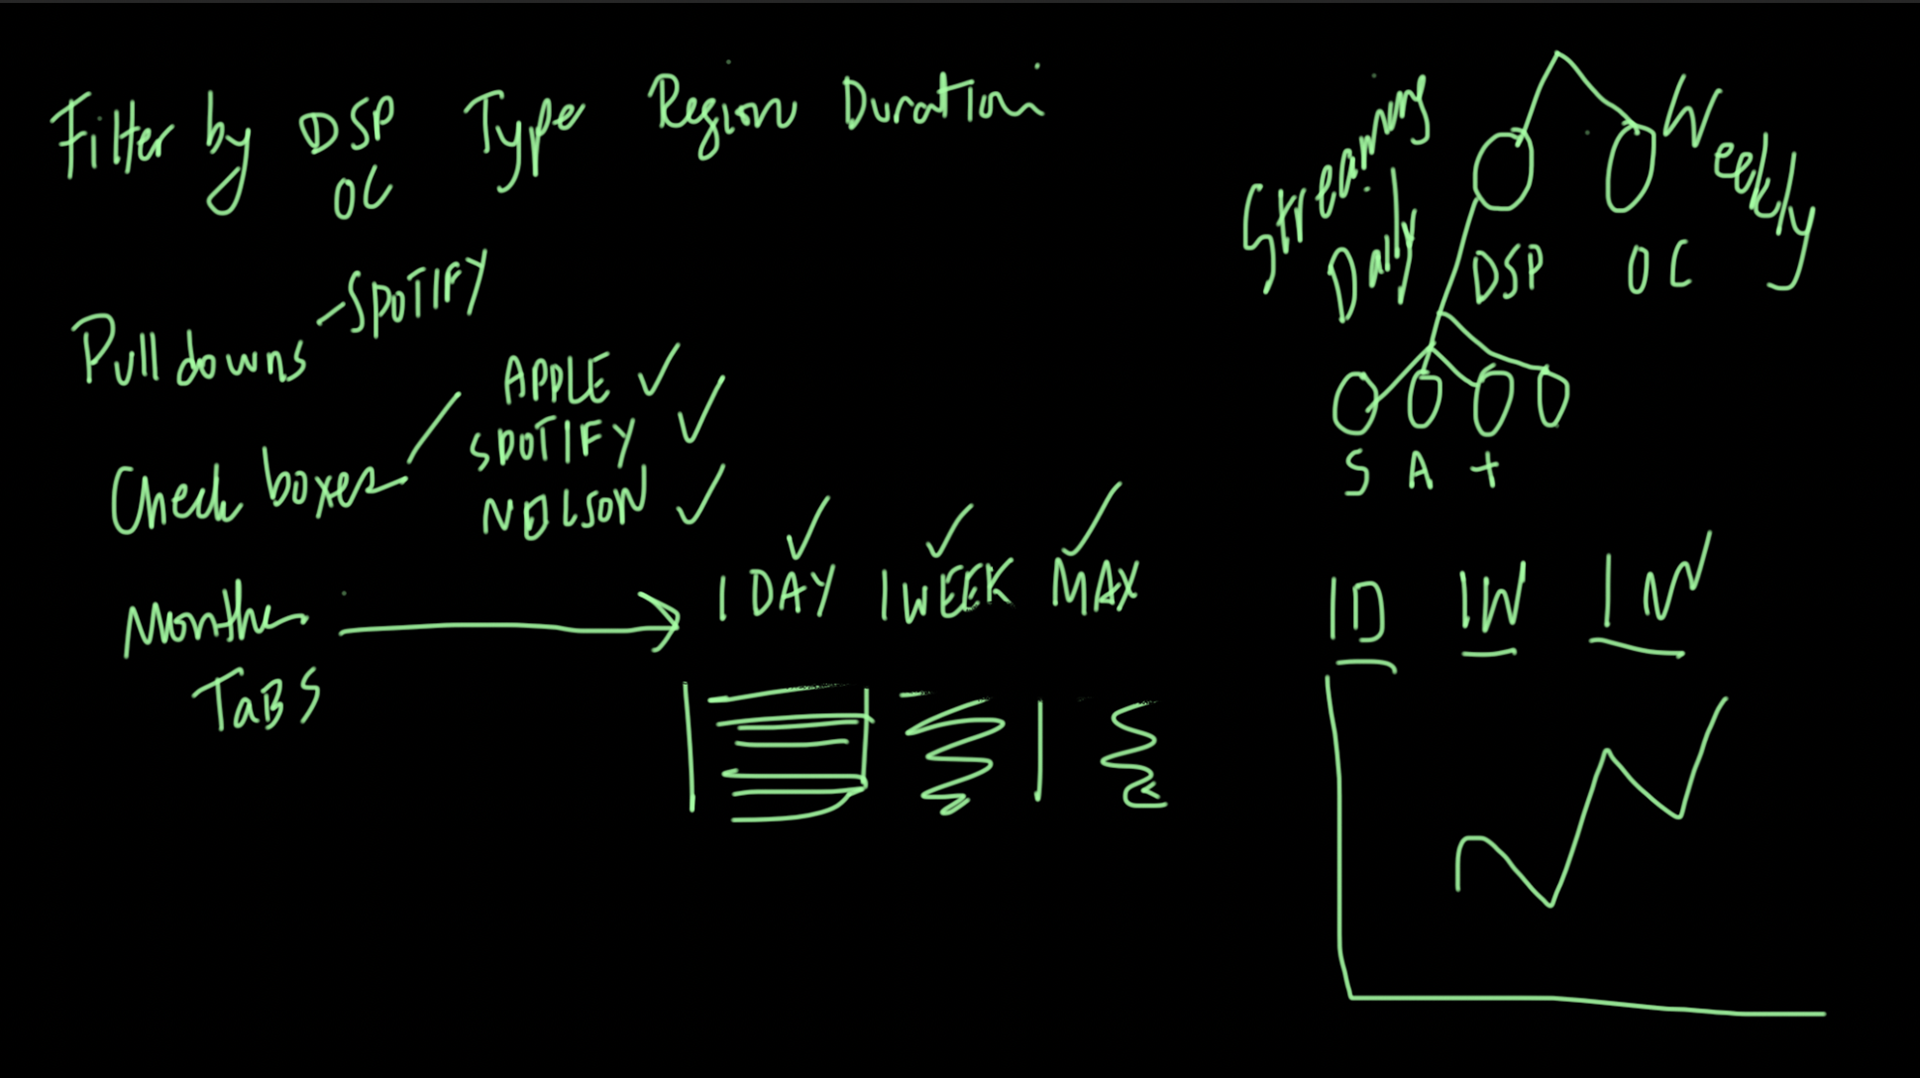 Filter by DSP Type Region Duration
OC
Pull downs - SPOTIFY
Check boxes
APPLE ✓
SPOTIFY ✓
NOILSON ✓
Months
TaBS
1 DAY ✓ 1 WEEK ✓ MAX ✓
Streaming
Daily
Weekly
DSP OC
S A +
1D 1W 1M